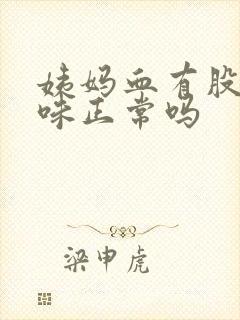 姨妈血有股
味正常吗
梁申虎